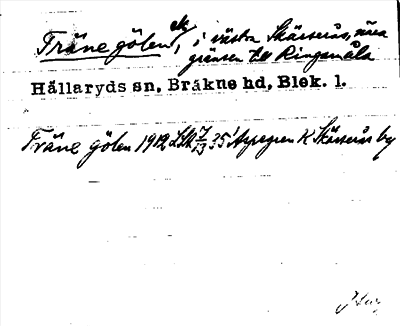 Träne gölen, i västra Skärserås, nära
gränsen till Ringamåla
Hällaryds sn, Bräkne hd, Blek. l.
Träne gölen 1912 LSA 7/13 35 Aspegren K Skärserås by